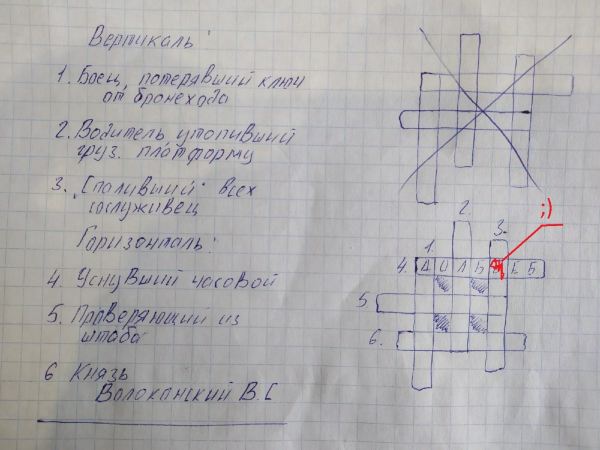 Вертикаль:
1. Боец, потерявший ключ
от бронехода
2. Водитель утопивший
груз. платформу
3. "Спаливший" всех
сослуживец
Горизонталь:
4. Уснувший часовой
5. Проверяющий из
штаба
6 Князь
Волоканский В.С
;)
2.
3.
1.
4. Д О Л Б Е Б
5
6.